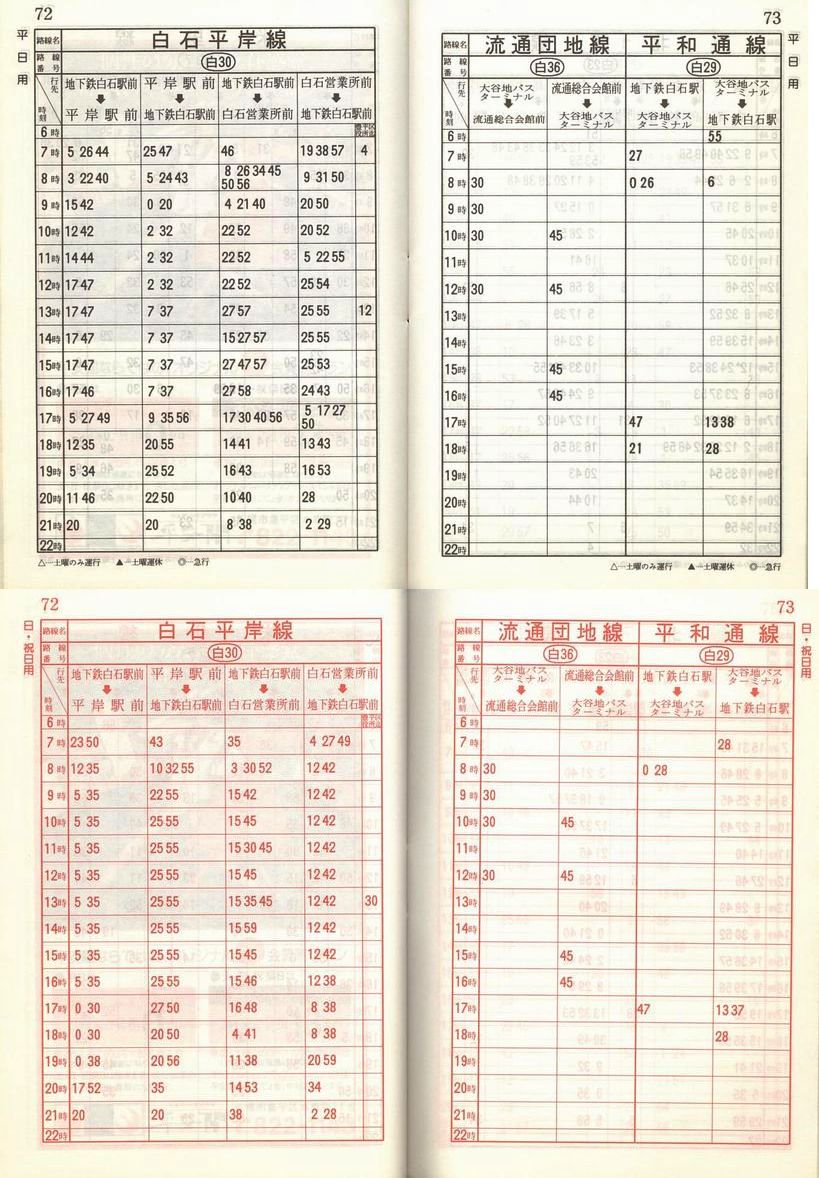 72
平日用
路線名 白石平岸線
路線番号 白30
行先 時刻 地下鉄白石駅前 平岸駅前 地下鉄白石駅前 白石営業所前
平岸駅前 地下鉄白石駅前 白石営業所前 地下鉄白石駅前
6時
7時 5 26 44 25 47 46 19 38 57 4
8時 3 22 40 5 24 43 8 26 34 45 50 56 9 31 50
9時 15 42 0 20 4 21 40 20 50
10時 12 42 2 32 22 52 20 52
11時 14 44 2 32 22 52 5 22 55
12時 17 47 2 32 22 52 25 54
13時 17 47 7 37 27 57 25 55 12
14時 17 47 7 37 15 27 57 25 55
15時 17 47 7 37 27 47 57 25 53
16時 17 46 7 37 27 58 24 43
17時 5 27 49 9 35 56 17 30 40 56 5 17 27 50
18時 12 35 20 55 14 41 13 43
19時 5 34 25 52 16 43 16 53
20時 11 46 22 50 10 40 28
21時 20 20 8 38 2 29
22時
△…土曜のみ運行 ▲…土曜運休 ◎…急行
73
平日用
路線名 流通団地線 平和通線
路線番号 白36 白29
行先 時刻 大谷地バスターミナル 流通総合会館前 地下鉄白石駅 大谷地バスターミナル
流通総合会館前 大谷地バスターミナル 大谷地バスターミナル 地下鉄白石駅
6時 55
7時 27
8時 30 0 26 6
9時 30
10時 30 45
11時
12時 30 45
13時
14時
15時 45
16時 45
17時 47 13 38
18時 21 28
19時
20時
21時
22時
△…土曜のみ運行 ▲…土曜運休 ◎…急行
72
日・祝日用
路線名 白石平岸線
路線番号 白30
行先 時刻 地下鉄白石駅前 平岸駅前 地下鉄白石駅前 白石営業所前
平岸駅前 地下鉄白石駅前 白石営業所前 地下鉄白石駅前
6時
7時 23 50 43 35 4 27 49
8時 12 35 10 32 55 3 30 52 12 42
9時 5 35 22 55 15 42 12 42
10時 5 35 25 55 15 45 12 42
11時 5 35 25 55 15 30 45 12 42
12時 5 35 25 55 15 45 12 42
13時 5 35 25 55 15 35 45 12 42 30
14時 5 35 25 55 15 59 12 42
15時 5 35 25 55 15 45 12 42
16時 5 35 25 55 15 46 12 38
17時 0 30 27 50 16 48 8 38
18時 0 30 20 50 4 41 8 38
19時 0 38 20 56 11 38 20 59
20時 17 52 35 14 53 34
21時 20 20 38 2 28
22時
73
日・祝日用
路線名 流通団地線 平和通線
路線番号 白36 白29
行先 時刻 大谷地バスターミナル 流通総合会館前 地下鉄白石駅 大谷地バスターミナル
流通総合会館前 大谷地バスターミナル 大谷地バスターミナル 地下鉄白石駅
6時
7時 28
8時 30 0 28
9時 30
10時 30 45
11時
12時 30 45
13時
14時
15時 45
16時 45
17時 47 13 37
18時 28
19時
20時
21時
22時